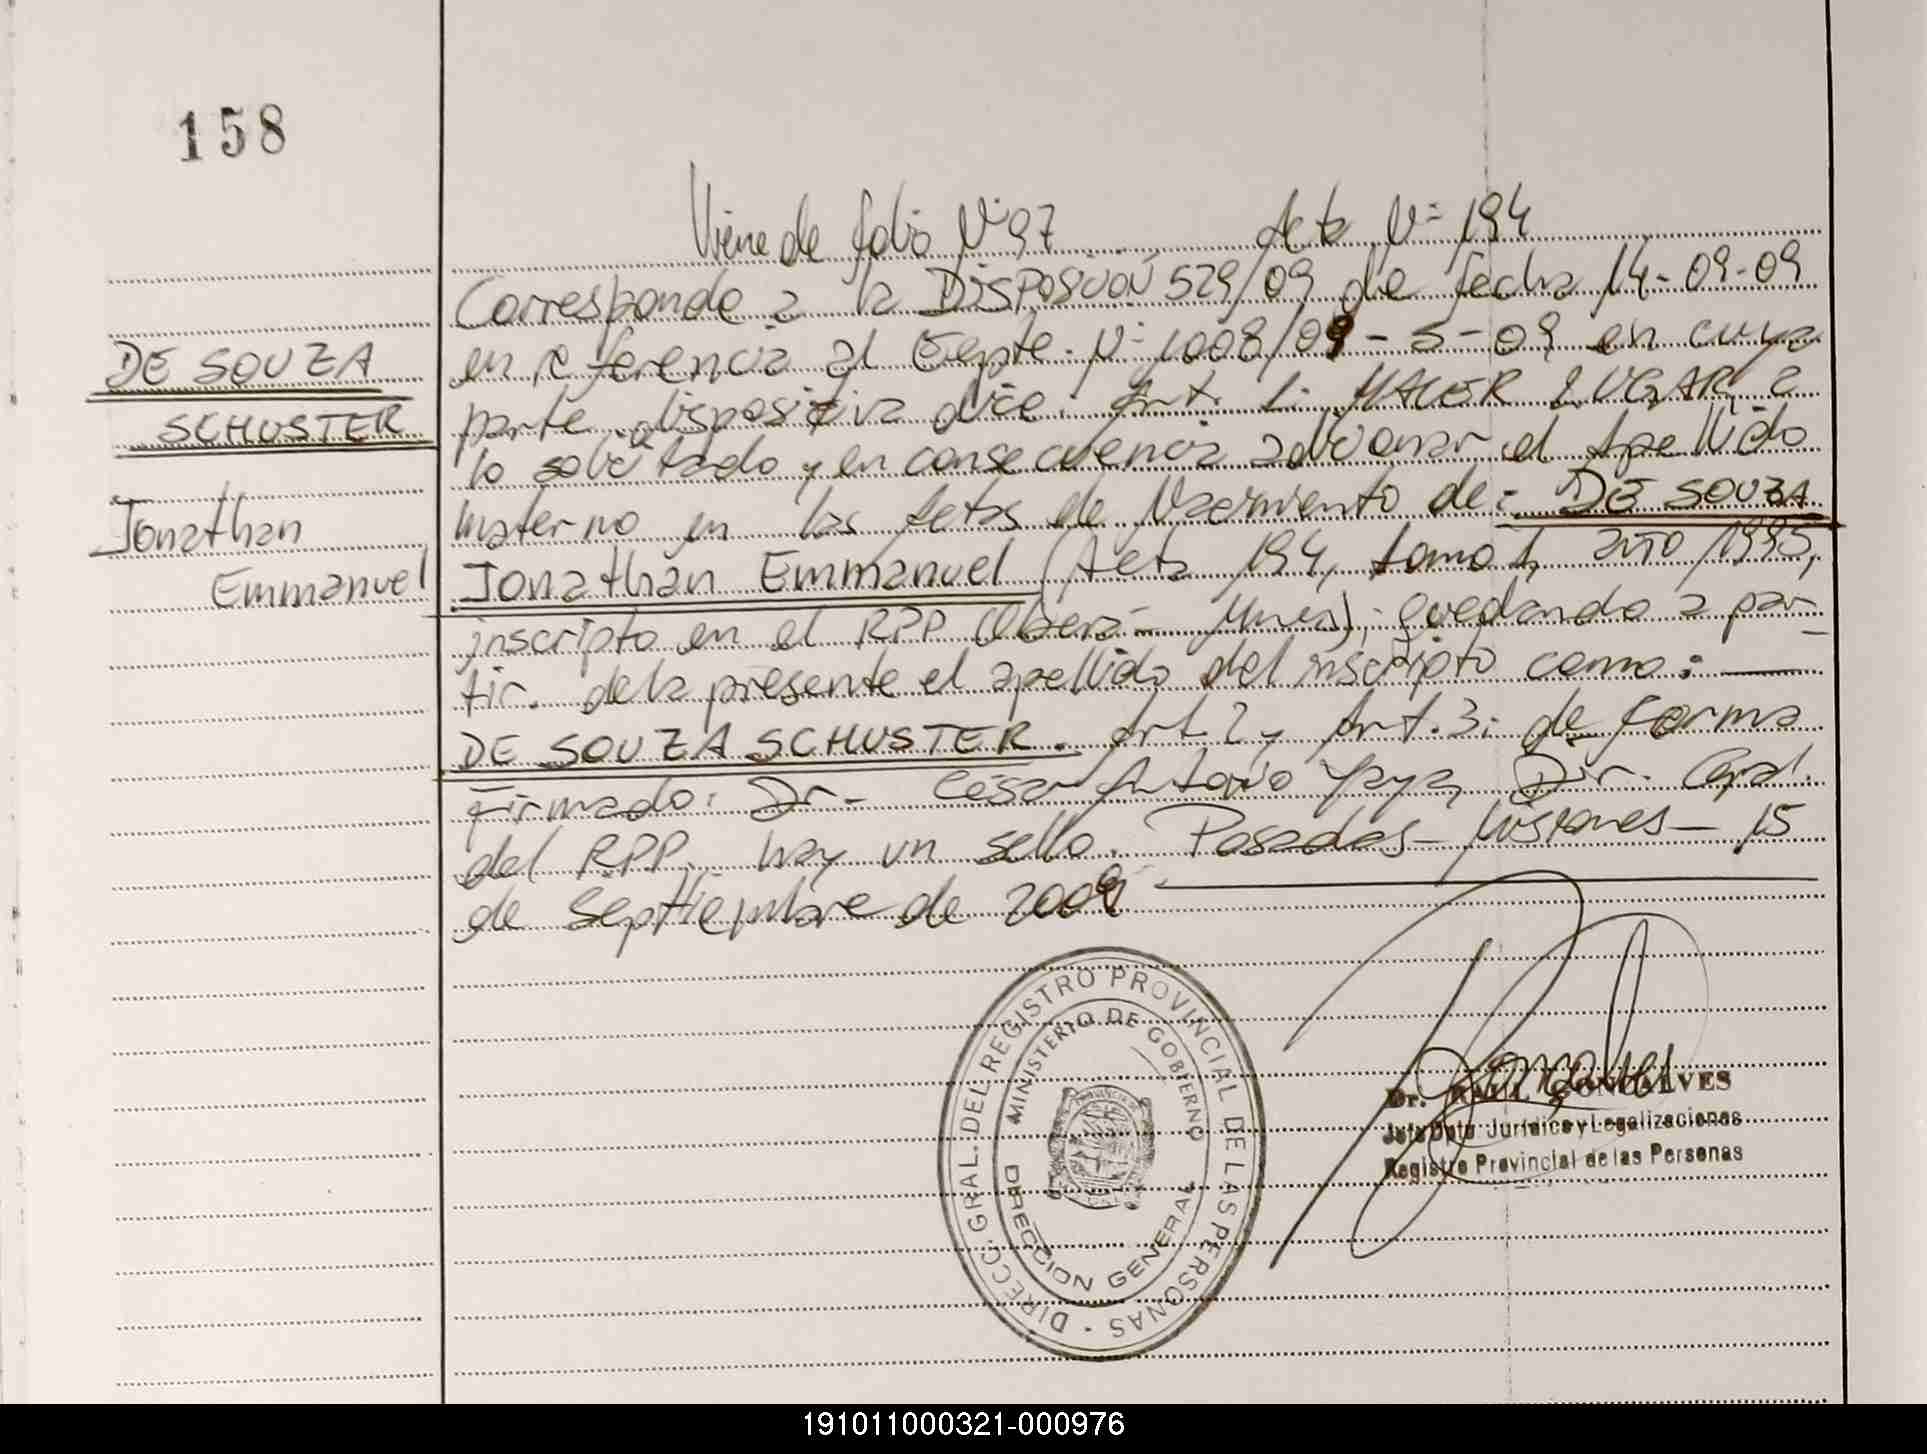 158
Viene de folio Nº 97 Acta Nº 194
DE SOUZA
SCHUSTER
Jonathan
Emmanuel
Corresponde a la DISPOSICION 529/09 de fecha 14-09-09
en referencia al Expte. Nº 1008/09-S-09 en cuya
parte dispositiva dice: Art. 1: HACER LUGAR a
lo solicitado y en consecuencia adicionar el Apellido
materno en las Actas de Nacimiento de: DE SOUZA
Jonathan Emmanuel (Acta 194, tomo 1, año 1995,
inscripto en el RPP (Oberá - Mnes); quedando a par-
tir. de la presente el apellido del inscripto como:
DE SOUZA SCHUSTER. Art. 2 y Art. 3: de forma
Firmado: Dr. César Antonio Yaya, Dir. Gral.
del RPP. hay un sello. Posadas - Misiones - 15
de Septiembre de 2009
DIRECC. GRAL. DEL REGISTRO PROVINCIAL DE LAS PERSONAS
MINISTERIO DE GOBIERNO
DIRECCION GENERAL
Dr. RAUL GONCALVES
Jefe Dpto. Jurídico y Legalizaciones
Registro Provincial de las Personas
191011000321-000976